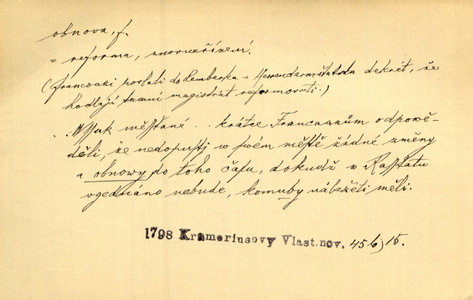 obnova, f.
= reforma, znovuzřízení.
(Francouzi poslali do Lemberka v dekrét, že
hodlají magistrát reformovati.)
.. Wssak měsstané .. krátce Francauzům odpowě-
děli, že nedopustj w swém městě žádné změny
a obnowy do toho času, dokudž w Rasstatu
vgednáno nebude, komuby náležeti měli.
1798 Krameriusovy Vlast.nov. 45 b) 15.